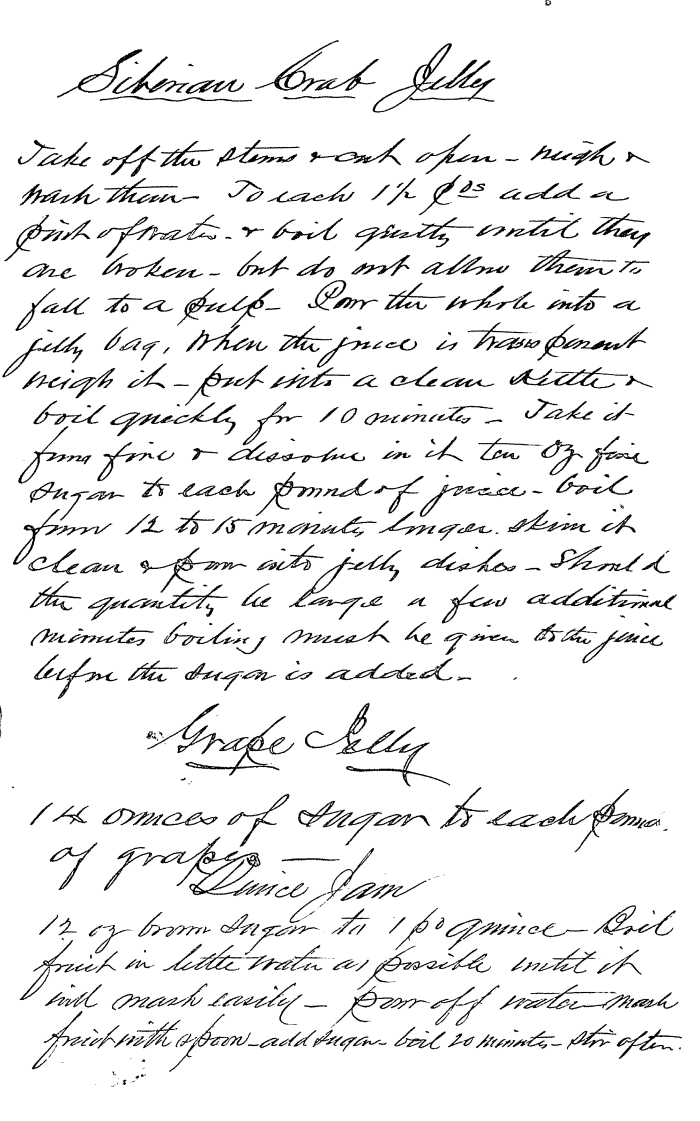 Siberian Crab Jelly
Take off the stems & cut open - weigh &
wash them - To each 1½ pds add a
pint of water - & boil gently until they
are broken - but do not allow them to
fall to a pulp - Pour the whole into a
jelly bag, When the juice is transparent
weigh it - put into a clean kettle &
boil quickly for 10 minutes - Take it
from fire & dissolve in it ten oz fine
sugar to each pound of juice - boil
from 12 to 15 minutes longer. skim it
clean & pour into jelly dishes - Should
the quantity be large a few additional
minutes boiling must be given to the juice
before the sugar is added -
Grape Jelly
14 ounces of sugar to each pound
of grapes -
Quince Jam
12 oz brown sugar to 1 pd quince - Boil
fruit in little water as possible until it
will mash easily - pour off water - mash
fruit with spoon - add sugar - boil 20 minutes - stir often.